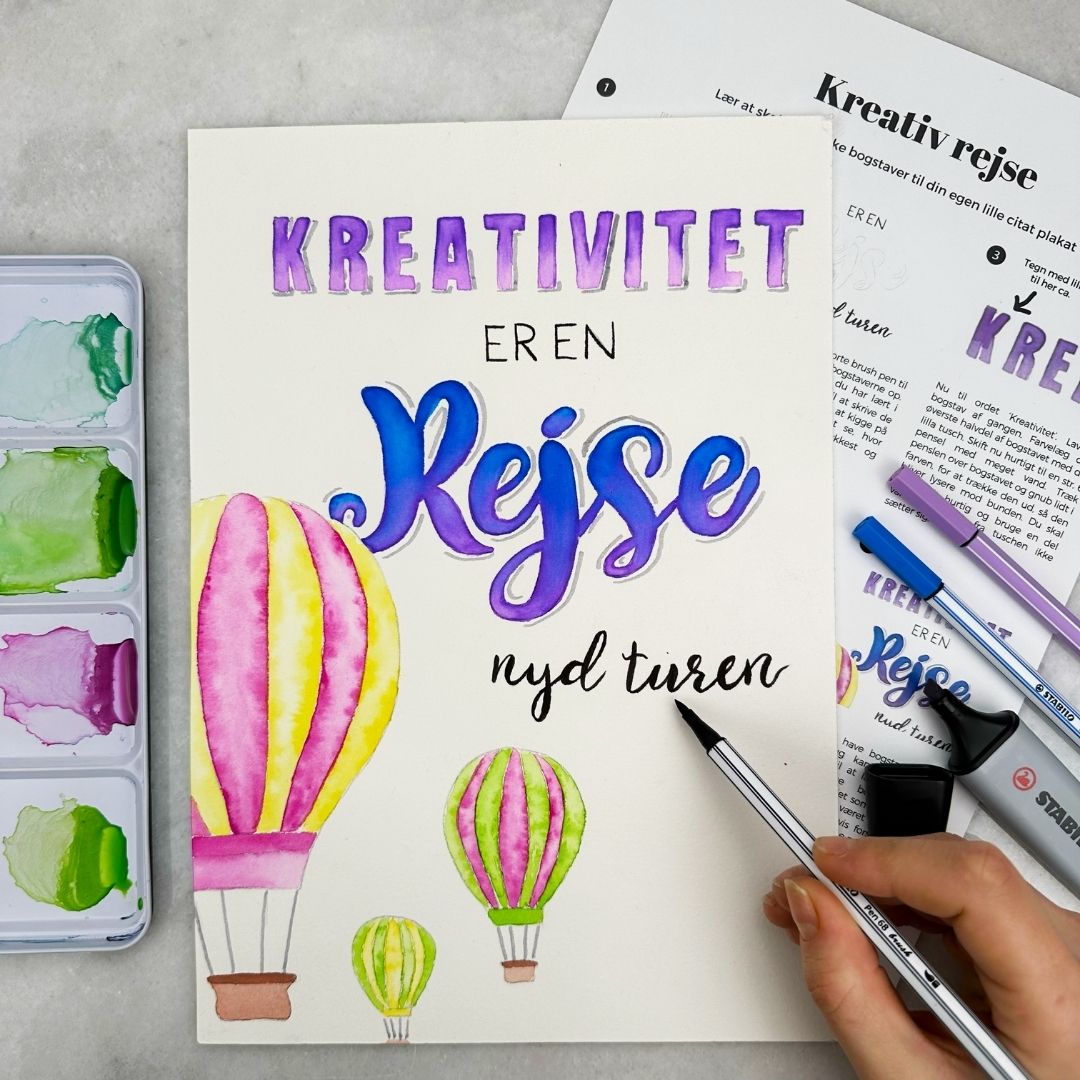 KREATIVITET
ER EN
Rejse
nyd turen
Kreativ rejse
1
Lær at
ke bogstaver til din egen lille citat plakat
ER EN
Rejse
turen
3
Tegn med
til her ca.
KRE
orte brush pen til
bogstaverne op.
du har lært i
at skrive de
at kigge på
se, hvor
og
Nu til ordet 'Kreativitet'.
bogstav af gangen. Farvelæg
øverste halvdel af bogstavet med
lilla tusch. Skift nu hurtigt til en str.
pensel med meget vand. Træk
penslen over bogstavet og gnub lidt i
farven, for at trække den ud, så den
bliver lysere mod bunden. Du skal
hurtig og bruge en del
fra tuschen ikke
sætter sig
KREATIVITET
ER EN
Rejse
nyd turen
have
STABILO
STABILO
Pen 68 brush